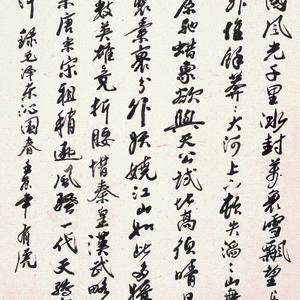 國風光千里冰封萬里雪飄望長
外惟餘莽〻大河上下頓失滔〻山
原馳蠟象欲與天公試比高須晴日
裝素裹分外妖嬈江山如此多嬌
數英雄競折腰惜秦皇漢武略
采唐宗宋祖稍遜風騷一代天驕
錄毛澤東沁園春